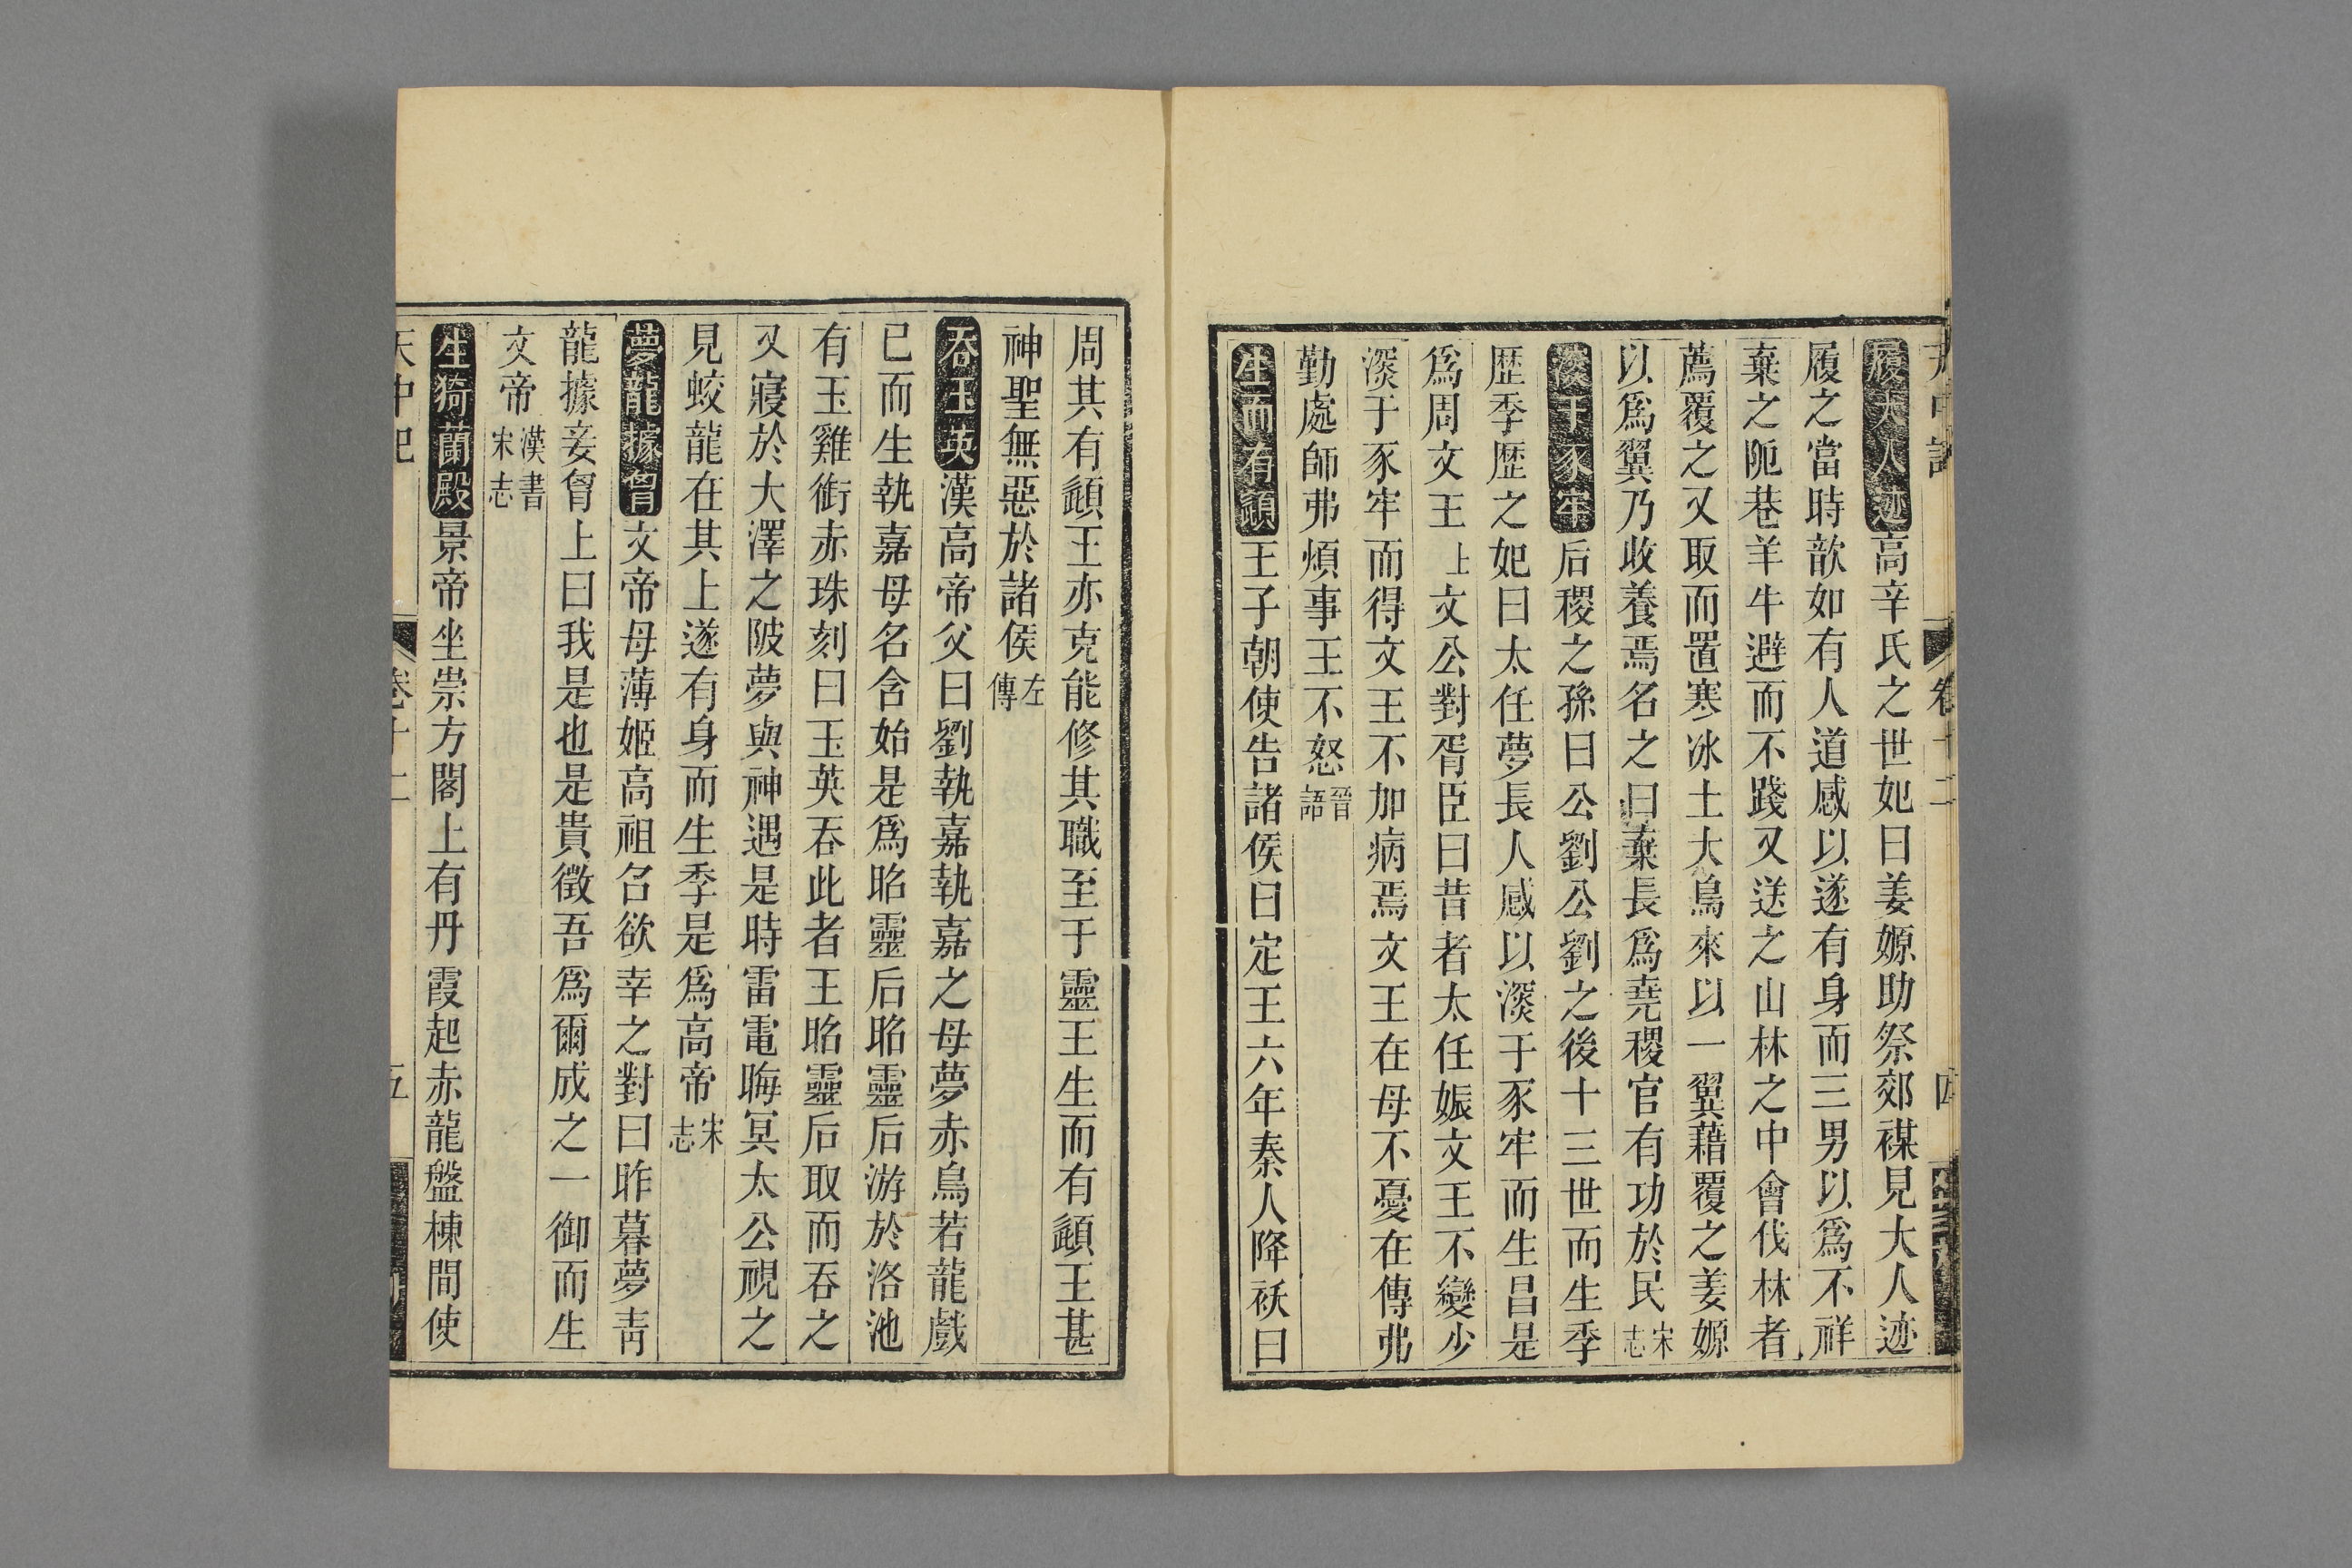 履大人迹高辛氏之世妃曰姜嫄助祭郊禖見大人迹
履之當時歆如有人道感以遂有身而三男以爲不祥
棄之阨巷羊牛避而不踐又送之山林之中會伐林者
薦覆之又取而置寒冰上大鳥來以一翼藉覆之姜嫄
以爲翼乃收養焉名之曰棄長爲堯稷官有功於民宋志
溲于豕牢后稷之孫曰公劉公劉之後十三世而生季
歷季歷之妃曰太任夢長人感以溲于豕牢而生昌是
爲周文王上文公對胥臣曰昔者太任娠文王不變少
溲于豕牢而得文王不加病焉文王在母不憂在傅弗
勤處師弗煩事王不怒晉語
生而有頿王子朝使告諸侯曰定王六年秦人降祅曰
周其有頿王亦克能修其職至于靈王生而有頿王甚
神聖無惡於諸侯左傳
吞玉英漢高帝父曰劉執嘉執嘉之母夢赤鳥若龍戲
已而生執嘉母名含始是爲昭靈后昭靈后游於洛池
有玉雞銜赤珠刻曰玉英吞此者王昭靈后取而吞之
又寢於大澤之陂夢與神遇是時雷電晦冥太公視之
見蛟龍在其上遂有身而生季是爲高帝宋志
夢龍據胷文帝母薄姬高祖召欲幸之對曰昨暮夢靑
龍據妾胷上曰我是也是貴徵吾爲爾成之一御而生
文帝漢書宋志
生猗蘭殿景帝坐崇方閣上有丹霞起赤龍盤棟間使
天中記 卷十二 五